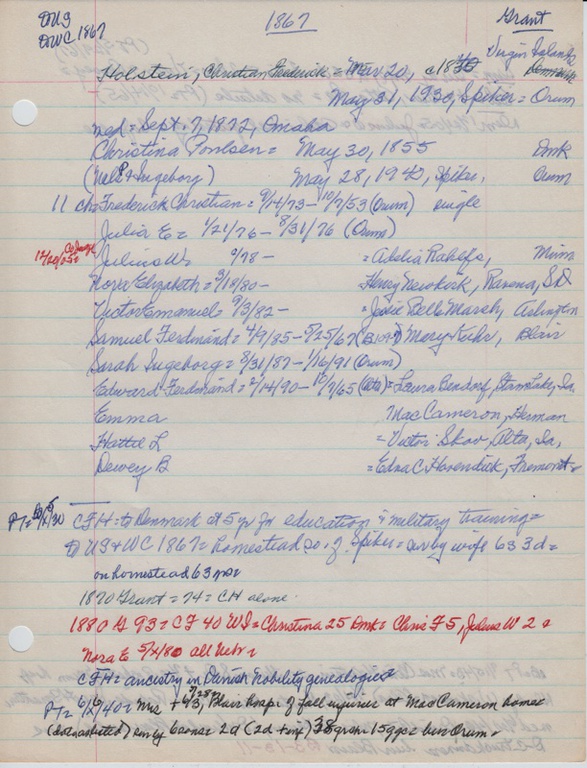 DUS 1867 Grant
DWC 1867
Virgin Islands
Holstein, Christian Frederick = Mar 20, c1840 Denmark
May 31, 1930, Spiker = Orum
med = Sept 7, 1872, Omaha
Christina Poulsen = May 30, 1855 Dmk
(Nels P & Ingeborg) May 28, 1940, Spiker, Orum
11 ch = Frederick Christian = 9/14/73 - 10/7/53 (Orum) single
Julia E = 1/21/76 - 8/31/76 (Orum)
12/20/05 Julius W = 9/78 - = Adelia Rahlfs, Minn
Nora Elizabeth = 3/10/80 - Henry Newkirk, Ravena, SD
Victor Emanuel = 9/3/82 - = Josie Belle Marsh, Arlington
Samuel Ferdinand = 4/9/85 - 5/25/67 Mary Kuhr, Blair
Sarah Ingeborg = 8/31/87 - 1/16/91 (Orum)
Edward Ferdinand = 2/14/90 - 10/9/65 = Laura Bendorf, Storm Lake, Ia
Emma MacCameron, Herman
Hattie L = Victor Skov, Alta, Ia,
Dewey B = Edna C Havendick, Fremont =
CFH = to Denmark at 5 yr for education & military training =
to US & WC 1867 = homestead so. of Spiker = surv by wife 6s 3d =
on homestead 63 yrs =
1870 Grant = 74 = CH alone.
1880 G 93 = CF 40 WI = Christina 25 Dmk = Chris F 5, Julius W 2 =
Nora E 5/x/80 all Nebr =
CFH = ancestry in Danish Nobility genealogies =
PT = 6/6/40 = Mrs + Blair hosp. of fall injuries at MacCameron home
surv by 6 sons 2d (2d + inf) 38 grch 15 ggc = bur Orum =